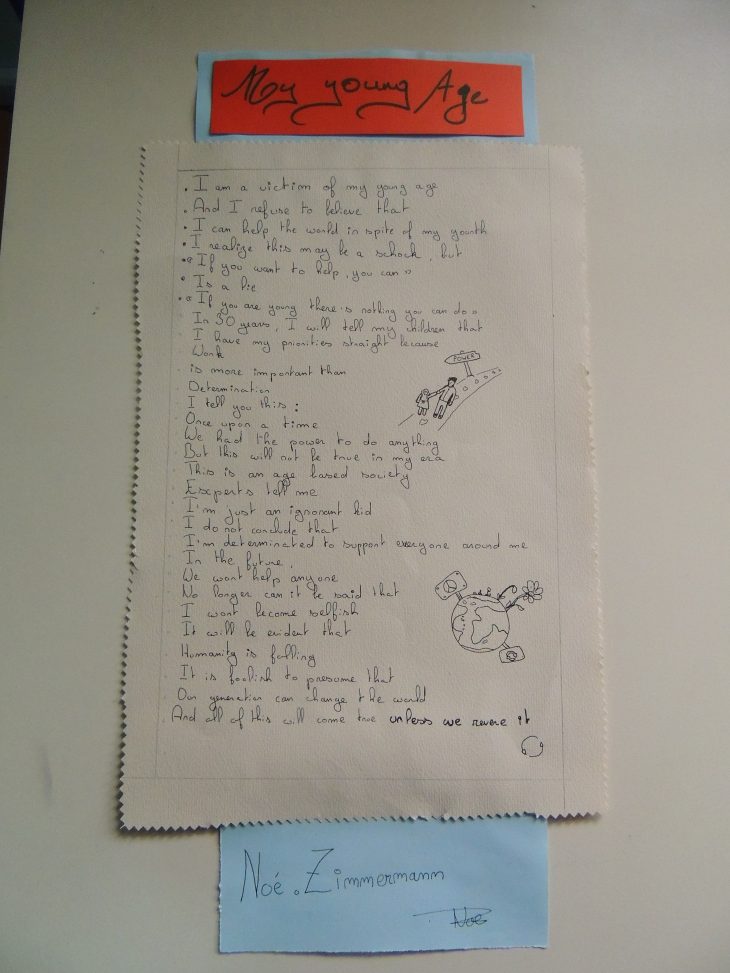 My young Age
• I am a victim of my young age
• And I refuse to believe that
• I can help the world in spite of my younth
• I realize this may be a schock, but
• « If you want to help, you can »
• Is a lie
• « If you are young there's nothing you can do »
In 30 years, I will tell my children that
I have my priorities straight because
Work
is more important than
Determination
I tell you this :
Once upon a time
We had the power to do anything
But this will not be true in my era
This is an age based society
Experts tell me
I'm just an ignorant kid
I do not conclude that
I'm determined to support everyone around me
In the future,
We wont help anyone
No longer can it be said that
I wont become selfish
It will be evident that
Humanity is falling
It is foolish to presume that
Our generation can change the world
And all of this will come true unless we revere it
POWER
Noé. Zimmermann
Noé